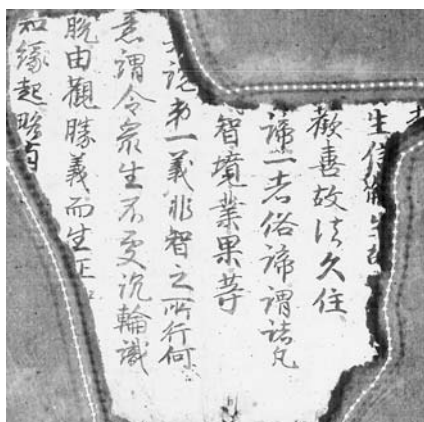 生信
歡喜故法久住
諦一者俗諦謂諸凡
智境業果等
說第一義非智之所行何
意謂令衆生不更沉輪識
脫由觀勝義而生正
和緣起略有